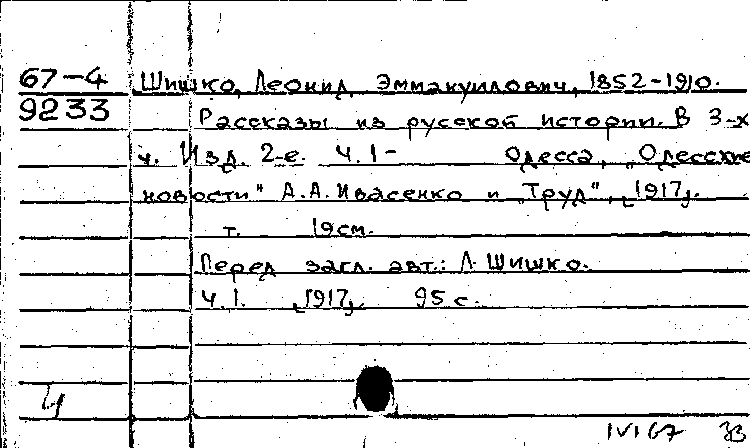 67-4 Шишко, Леонид Эммануилович, 1852-1910.
9233 Рассказы из русской истории. В 3-х
ч. Изд. 2-е. Ч.1- Одесса, „Одесские
новости" А.А. Ивасенко и „Труд", [1917].
т. 19см.
Перед загл. авт.: Л. Шишко.
Ч.1. [1917]. 95 с.
IVI 67 33